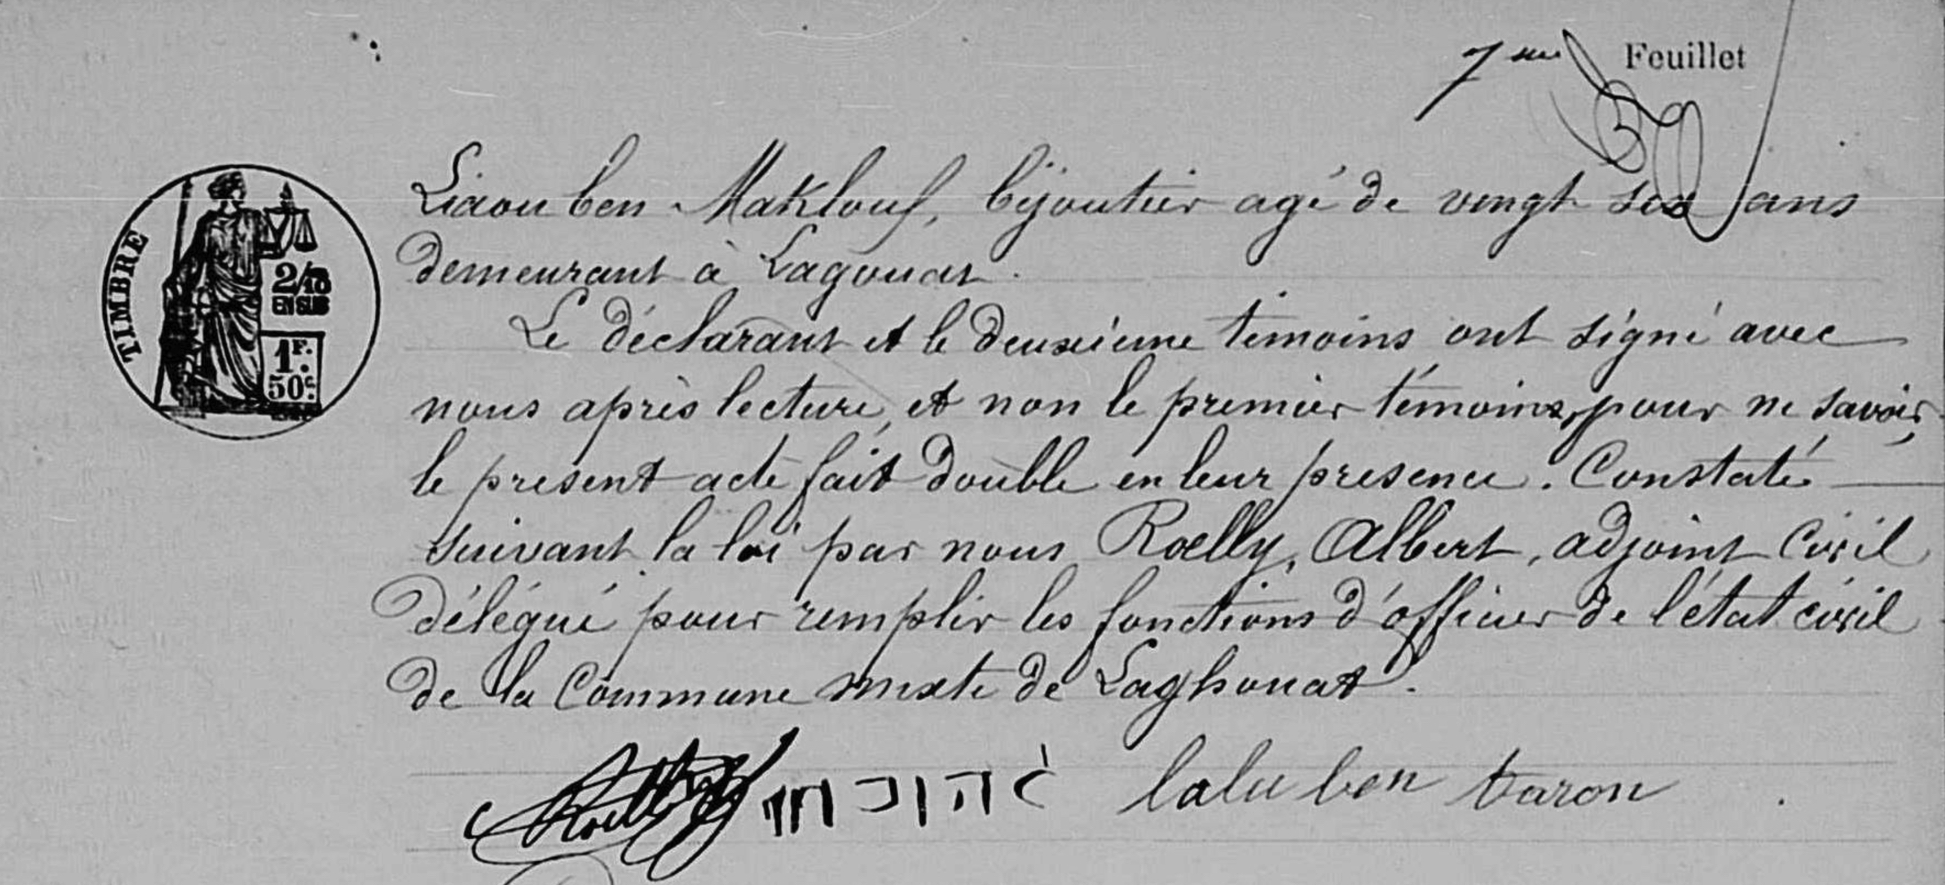 7me Feuillet
TIMBRE
2/10
EN SUS
1F.
50c.
Liaou ben Maklouf, bijoutier agé de vingt six ans
demeurant à Lagouat.
Le déclarant et le deuxième témoins ont signé avec
nous après lecture, et non le premier témoins, pour ne savoir,
le présent acte fait double en leur présence. Constaté
suivant la loi par nous Roelly, Albert, adjoint Civil
délégué pour remplir les fonctions d'officier de l'état civil
de la Commune mixte de Laghouat.
lalu ben baron